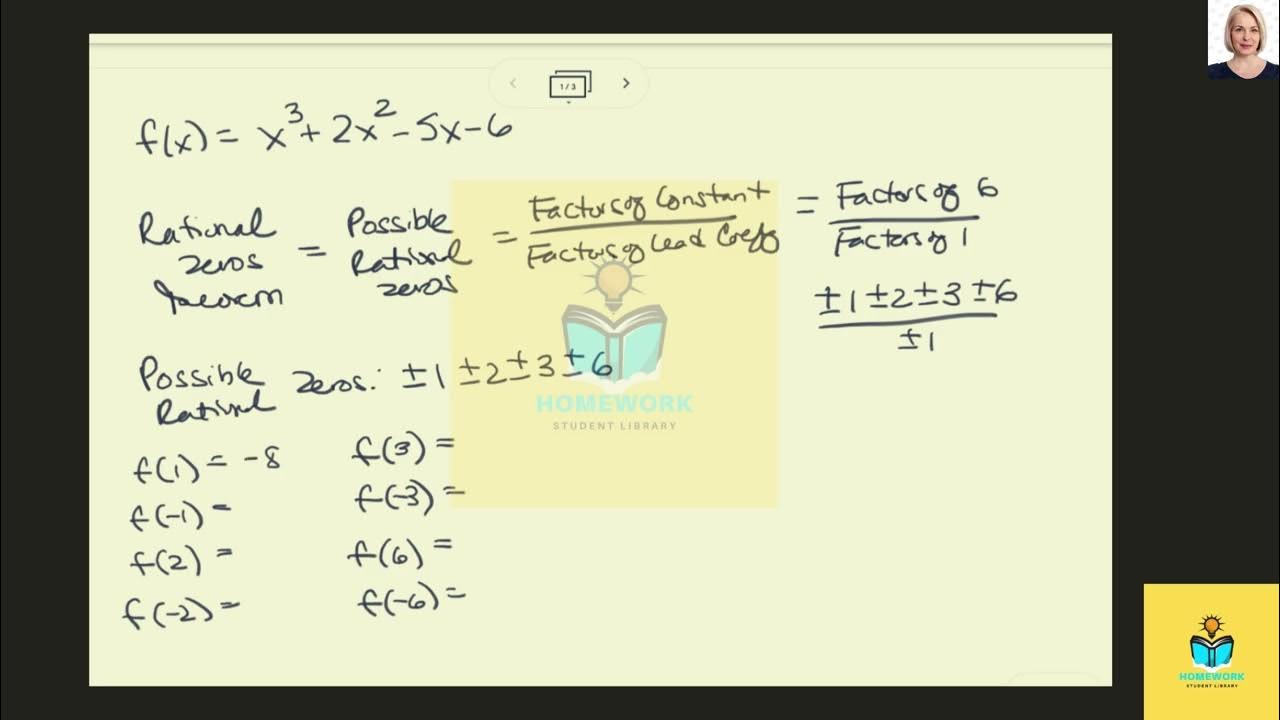 1 / 3
f(x) = x³ + 2x² - 5x - 6
Rational zeros theorem = Possible Rational zeros = Factors of Constant / Factors of Lead Coeff = Factors of 6 / Factors of 1
±1 ±2 ±3 ±6 / ±1
Possible Rational zeros: ±1 ±2 ±3 ±6
HOMEWORK
STUDENT LIBRARY
f(1) = -8
f(-1) =
f(2) =
f(-2) =
f(3) =
f(-3) =
f(6) =
f(-6) =
HOMEWORK
STUDENT LIBRARY